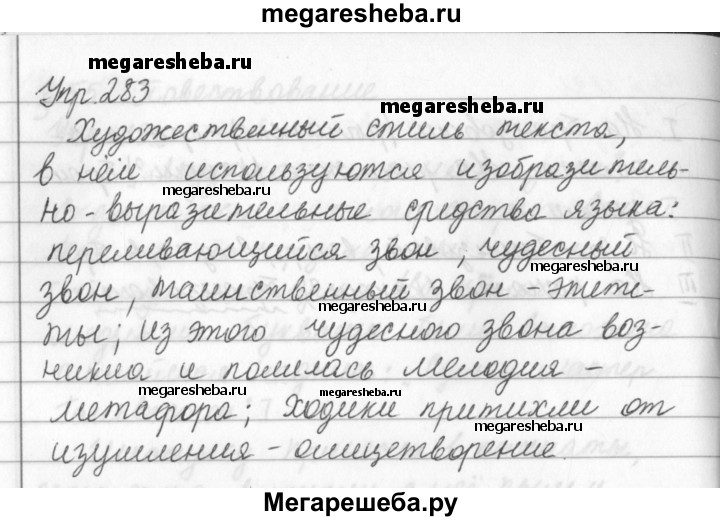 megaresheba.ru
megaresheba.ru
Упр. 283
megaresheba.ru
Художественный стиль текста,
в нём используются изобразитель-
megaresheba.ru
но-выразительные средства языка:
переливающийся звон, чудесный
megaresheba.ru
звон, таинственный звон - эпите-
megaresheba.ru
ты; из этого чудесного звона воз-
никла и полилась мелодия -
megaresheba.ru
megaresheba.ru
метафора; Ходики притихли от
megaresheba.ru
изумления - олицетворение.
Мегарешеба.ру